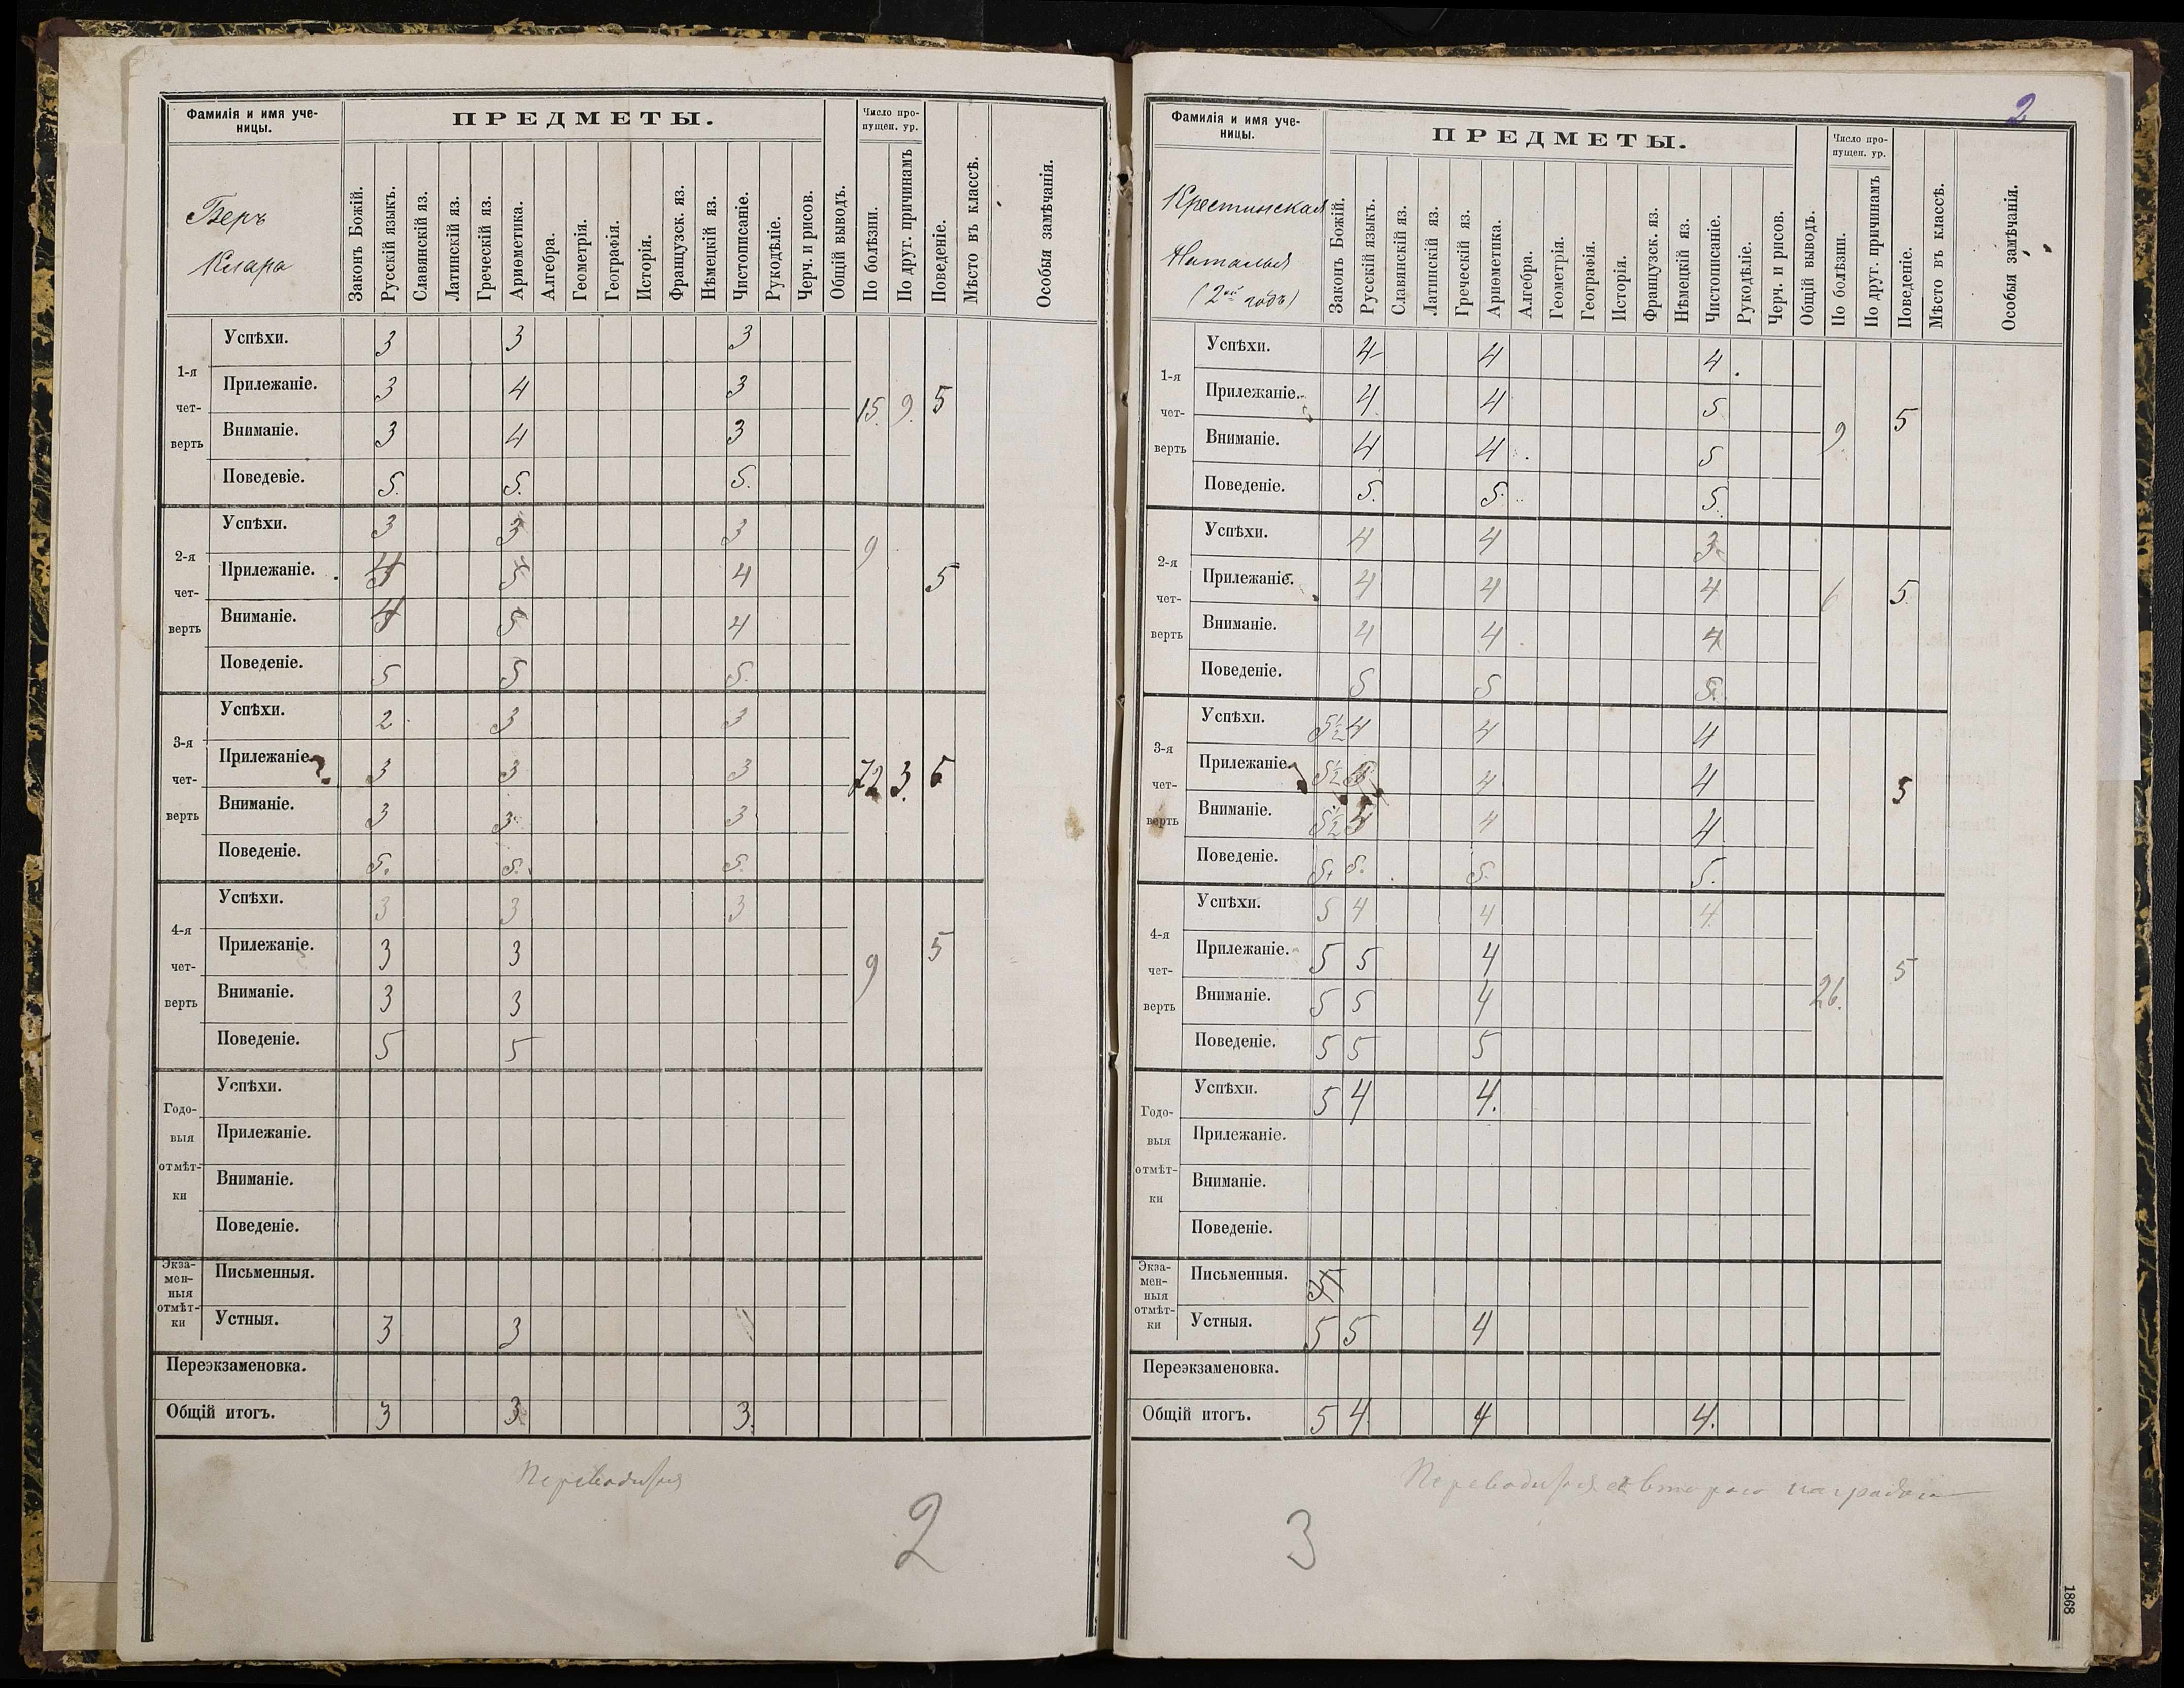 Фамилія и имя уче-
ницы.
ПРЕДМЕТЫ.
Число про-
пущен. ур.
Беръ
Клара
Законъ Божій.
Русскій языкъ.
Славянскій яз.
Латинскій яз.
Греческій яз.
Ариѳметика.
Алгебра.
Геометрія.
Географія.
Исторія.
Французск. яз.
Нѣмецкій яз.
Чистописаніе.
Рукодѣліе.
Черч. и рисов.
Общій выводъ.
По болѣзни.
По друг. причинамъ
Поведеніе.
Мѣсто въ классѣ.
Особыя замѣчанія.
1-я чет-верть
Успѣхи. 3 3 3
Прилежаніе. 3 4 3 15. 9. 5
Вниманіе. 3 4 3
Поведевіе. 5. 5. 5.
2-я чет-верть
Успѣхи. 3 3 3 9
Прилежаніе. 4 5 4 5
Вниманіе. 4 5 4
Поведеніе. 5 5 5.
3-я чет-верть
Успѣхи. 2. 3 3
Прилежаніе. 3 3 3 72 3. 5
Вниманіе. 3 3 3
Поведеніе. 5. 5. 5.
4-я чет-верть
Успѣхи. 3 3 3
Прилежаніе. 3 3 9 5
Вниманіе. 3 3
Поведеніе. 5 5
Годо-выя отмѣт-ки
Успѣхи.
Прилежаніе.
Вниманіе.
Поведеніе.
Экза-мен-ныя отмѣт-ки
Письменныя.
Устныя. 3 3
Переэкзаменовка.
Общій итогъ. 3 3 3.
Переводится
2
2
Фамилія и имя уче-
ницы.
ПРЕДМЕТЫ.
Число про-
пущен. ур.
Крестинская
Наталья
(2ой годъ)
Законъ Божій.
Русскій языкъ.
Славянскій яз.
Латинскій яз.
Греческій яз.
Ариѳметика.
Алгебра.
Геометрія.
Географія.
Исторія.
Французск. яз.
Нѣмецкій яз.
Чистописаніе.
Рукодѣліе.
Черч. и рисов.
Общій выводъ.
По болѣзни.
По друг. причинамъ
Поведеніе.
Мѣсто въ классѣ.
Особыя замѣчанія.
1-я чет-верть
Успѣхи. 4 4 4.
Прилежаніе. 4 4 5 9. 5
Вниманіе. 4 4 5
Поведеніе. 5. 5. 5.
2-я чет-верть
Успѣхи. 4 4 3
Прилежаніе. 4 4 4 6 5.
Вниманіе. 4 4 4
Поведеніе. 5 5 5.
3-я чет-верть
Успѣхи. 4 4 4
Прилежаніе. 4 4 5
Вниманіе. 4 4
Поведеніе. 5. 5. 5. 5.
4-я чет-верть
Успѣхи. 5 4 4 4
Прилежаніе. 5 5 4 26. 5
Вниманіе. 5 5 4
Поведеніе. 5 5 5
Годо-выя отмѣт-ки
Успѣхи. 5 4 4.
Прилежаніе.
Вниманіе.
Поведеніе.
Экза-мен-ныя отмѣт-ки
Письменныя. 5
Устныя. 5 5 4
Переэкзаменовка.
Общій итогъ. 5 4 4 4.
Переводится съ второю наградою
3
1868